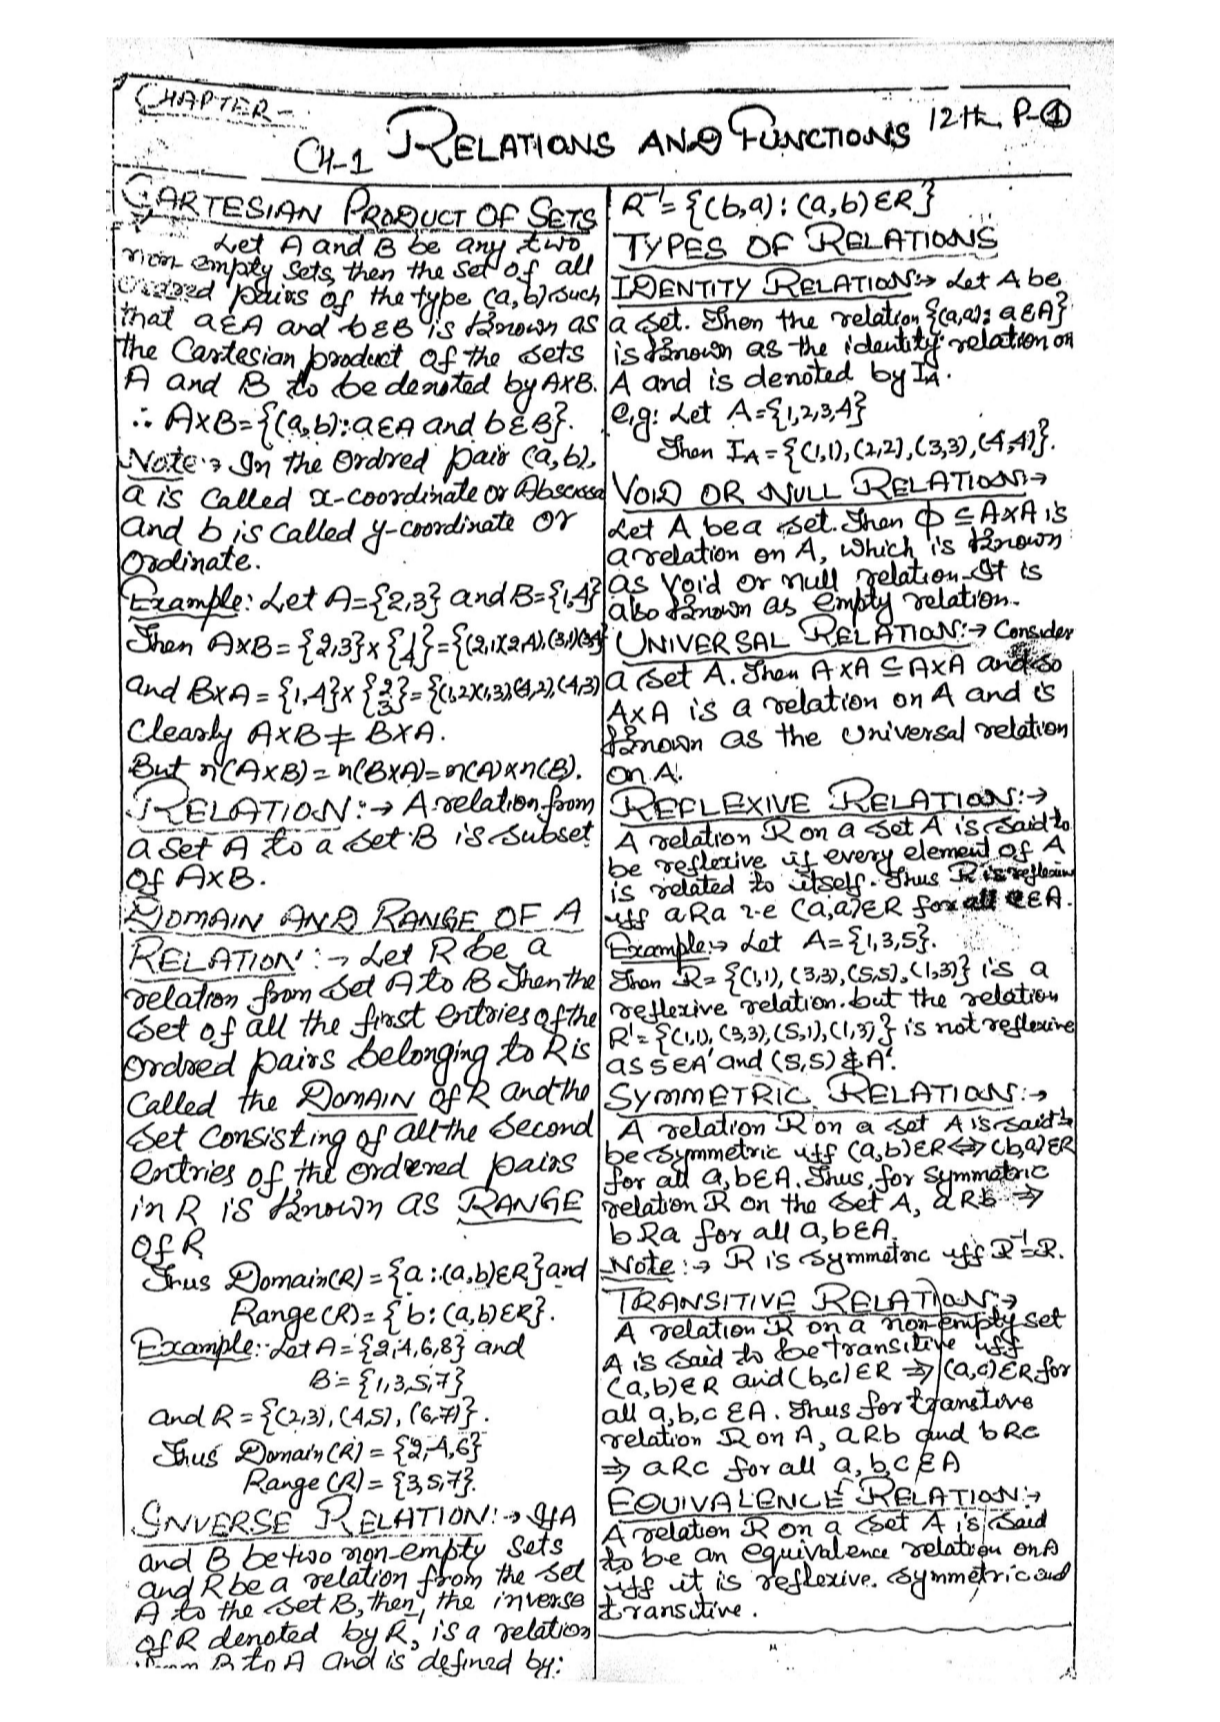 CHAPTER-
CH-1 RELATIONS AND FUNCTIONS 12th P-1
CARTESIAN PRODUCT OF SETS
Let A and B be any two
non-empty sets, then the set of all
ordred pairs of the type (a,b) such
that a∈A and b∈B is known as
the Cartesian product of the sets
A and B to be denoted by A×B.
∴ A×B={(a,b):a∈A and b∈B}.
Note:→ In the ordred pair (a,b),
a is called x-coordinate or Abscissa
and b is called y-coordinate or
ordinate.
Example: Let A={2,3} and B={1,4}
Then A×B={2,3}×{1,4}={(2,1)(2,4),(3,1)(3,4)
and B×A={1,4}×{2,3}={(1,2)(1,3)(4,2),(4,3)
Clearly A×B≠B×A.
But n(A×B)=n(B×A)=n(A)×n(B).
RELATION:→ A relation from
a set A to a set B is subset
of A×B.
DOMAIN AND RANGE OF A
RELATION:→ Let R be a
relation from set A to B Then the
set of all the first entries of the
ordred pairs belonging to R is
called the DOMAIN of R and the
set consisting of all the second
entries of the ordered pairs
in R is known as RANGE
of R
Thus Domain(R)={a:(a,b)∈R} and
Range(R)={b:(a,b)∈R}.
Example:-Let A={2,4,6,8} and
B={1,3,5,7}
and R={(2,3),(4,5),(6,7)}.
Thus Domain(R)={2,4,6}
Range(R)={3,5,7}.
INVERSE RELATION:→ If A
and B be two non-empty sets
and R be a relation from the set
A to the set B, then, the inverse
of R denoted by R⁻¹, is a relation
from B to A and is defined by:
R⁻¹={(b,a):(a,b)∈R}
TYPES OF RELATIONS
IDENTITY RELATION:→ Let A be
a set. Then the relation {(a,a): a∈A}
is known as the identity relation on
A and is denoted by I_A.
e.g: Let A={1,2,3,4}
Then I_A={(1,1),(2,2),(3,3),(4,4)}.
VOID OR NULL RELATION:→
Let A be a set. Then ϕ ⊆ A×A is
a relation on A, which is known
as void or null relation. It is
also known as empty relation.
UNIVERSAL RELATION:→ Consider
a set A. Then A×A ⊆ A×A and so
A×A is a relation on A and is
known as the universal relation
on A.
REFLEXIVE RELATION:→
A relation R on a set A is said to
be reflexive if every element of A
is related to itself. Thus R is reflexive
iff aRa i.e (a,a)∈R for all a∈A.
Example:→ Let A={1,3,5}.
Then R={(1,1),(3,3),(5,5),(1,3)} is a
reflexive relation. but the relation
R'={(1,1),(3,3),(5,1),(1,3)} is not reflexive
as 5∈A and (5,5)∉A'.
SYMMETRIC RELATION:→
A relation R on a set A is said to
be symmetric iff (a,b)∈R⟺(b,a)∈R
for all a,b∈A. Thus, for symmetric
relation R on the set A, aRb ⇒
bRa for all a,b∈A.
Note:→ R is symmetric iff R⁻¹=R.
TRANSITIVE RELATION:→
A relation R on a non-empty set
A is said to be transitive iff
(a,b)∈R and (b,c)∈R ⇒ (a,c)∈R for
all a,b,c∈A. Thus for transtive
relation R on A, aRb and bRc
⇒ aRc for all a,b,c∈A
EQUIVALENCE RELATION:→
A relation R on a set A is said
to be an equivalence relation on A
iff it is reflexive. symmetric and
transitive.